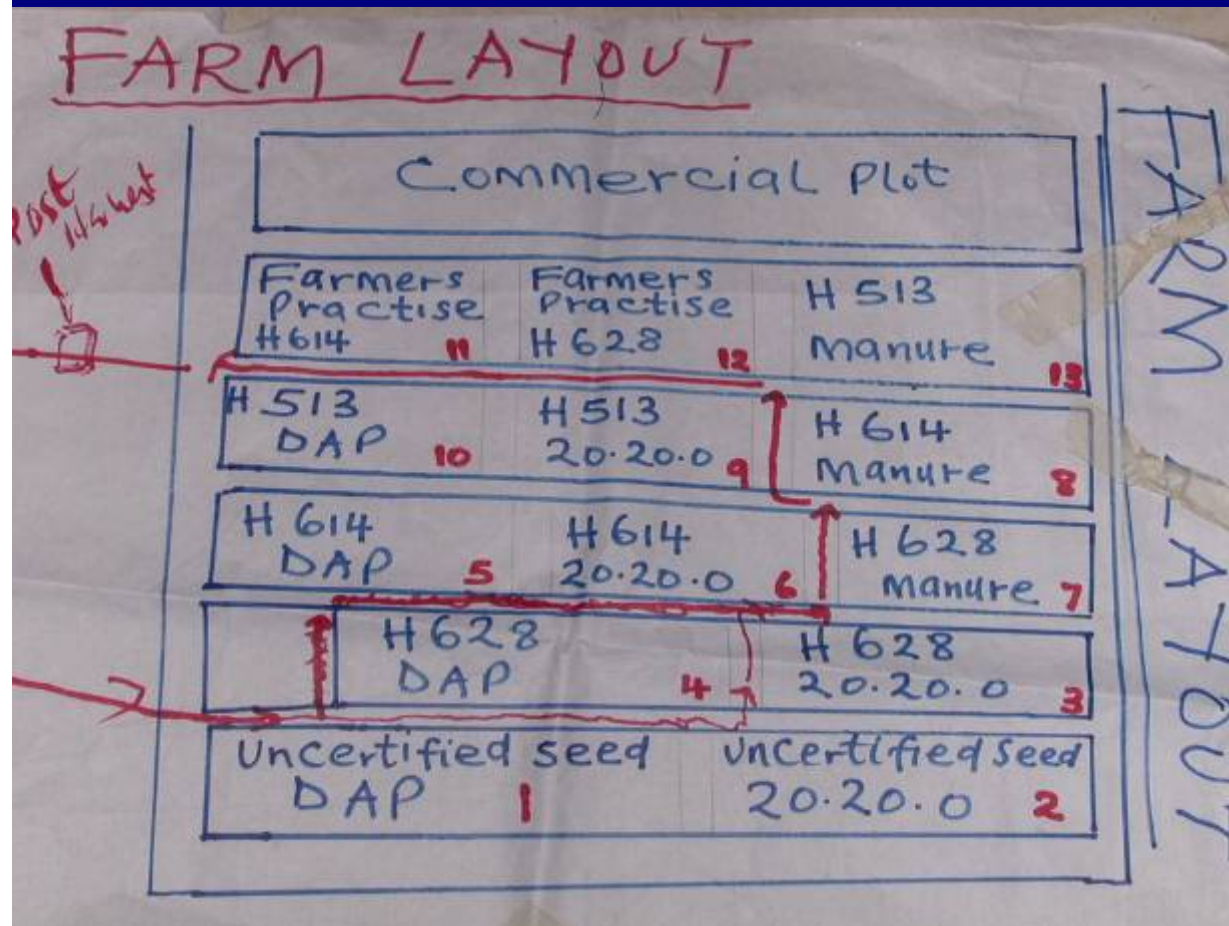 FARM LAYOUT
Post
Harvest
Commercial Plot
Farmers
Practise
H614 11
Farmers
Practise
H 628 12
H 513
Manure 13
H 513
DAP 10
H 513
20.20.0 9
H 614
Manure 8
H 614
DAP 5
H 614
20.20.0 6
H 628
Manure 7
H 628
DAP 4
H 628
20.20.0 3
Uncertified seed
DAP 1
Uncertified seed
20.20.0 2
FARM LAYOUT